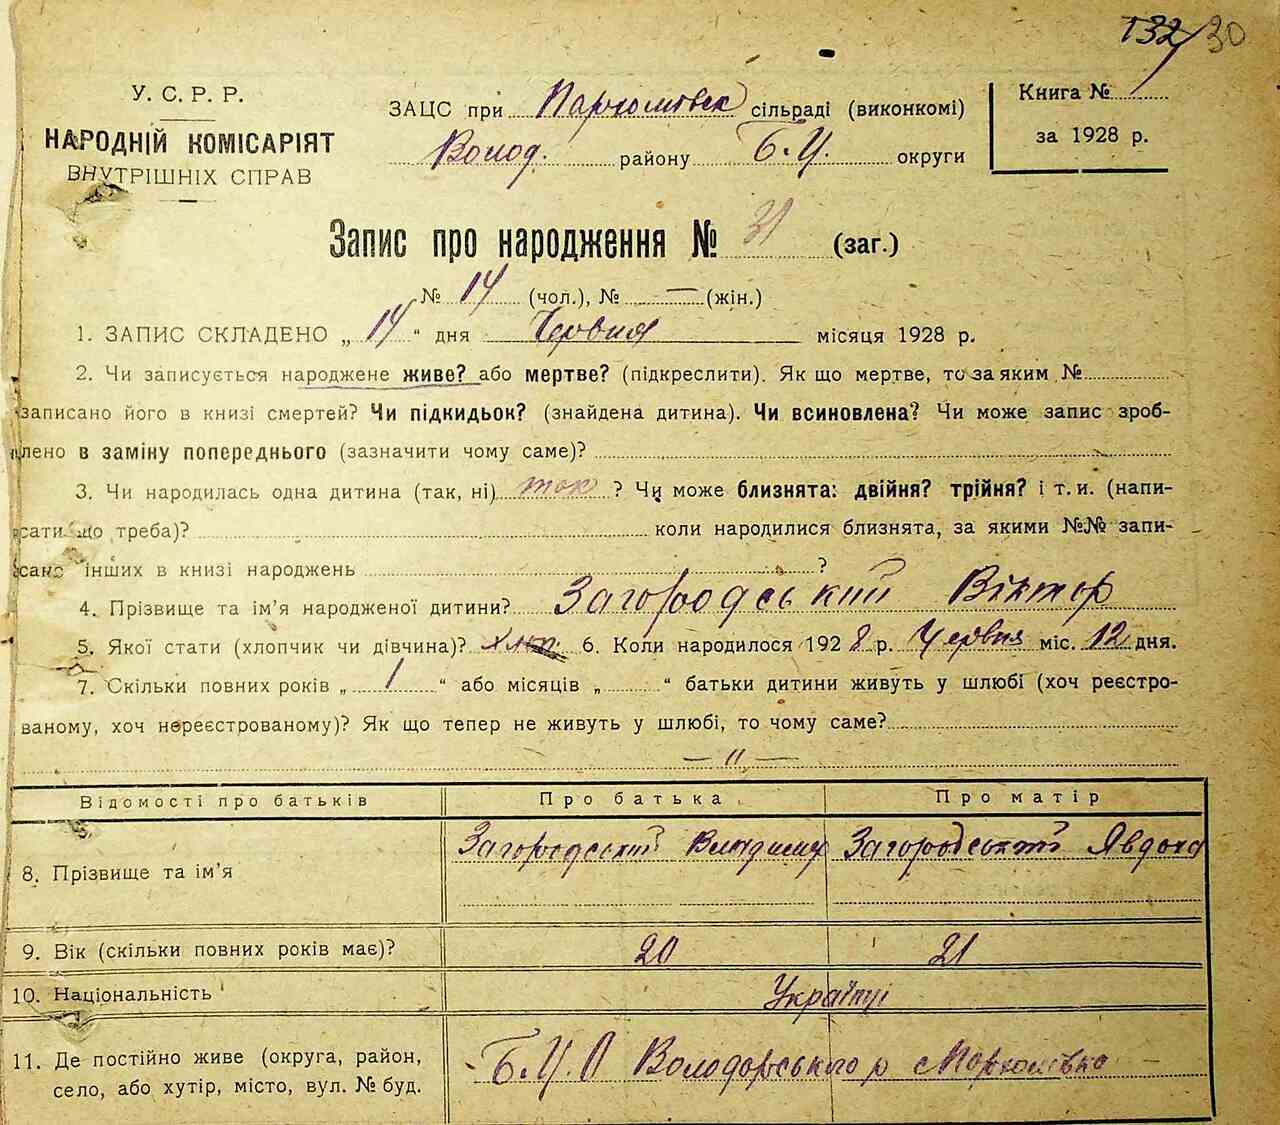 132/30
У. С. Р. Р.
НАРОДНІЙ КОМІСАРІЯТ
ВНУТРІШНІХ СПРАВ
ЗАЦС при Пархомівск сільраді (виконкомі)
Волод. району Б.Ц. округи
Книга №
за 1928 р.
Запис про народження № 31 (заг.)
№ 14 (чол.), № — (жін.)
1. ЗАПИС СКЛАДЕНО „ 14 “ дня Червня місяця 1928 р.
2. Чи записується народжене живе? або мертве? (підкреслити). Як що мертве, то за яким №
записано його в книзі смертей? Чи підкидьок? (знайдена дитина). Чи всиновлена? Чи може запис зроб-
лено в заміну попереднього (зазначити чому саме)?
3. Чи народилась одна дитина (так, ні) так ? Чи може близнята: двійня? трійня? і т. и. (напи-
сати що треба)? коли народилися близнята, за якими №№ запи-
сано інших в книзі народжень ?
4. Прізвище та ім’я народженої дитини? Загородський Віктор
5. Якої стати (хлопчик чи дівчина)? хлоп. 6. Коли народилося 1928 р. Червня міс. 12 дня.
7. Скільки повних років „ 1 “ або місяців „ “ батьки дитини живуть у шлюбі (хоч реєстро-
ваному, хоч нереєстрованому)? Як що тепер не живуть у шлюбі, то чому саме?
— „ —
Відомості про батьків Про батька Про матір
8. Прізвище та ім’я Загородський Владимир Загородський Явдоха
9. Вік (скільки повних років має)? 20 21
10. Національність Українці
11. Де постійно живе (округа, район,
село, або хутір, місто, вул. № буд.
Б.Ц.О Володарського р с Пархомівка